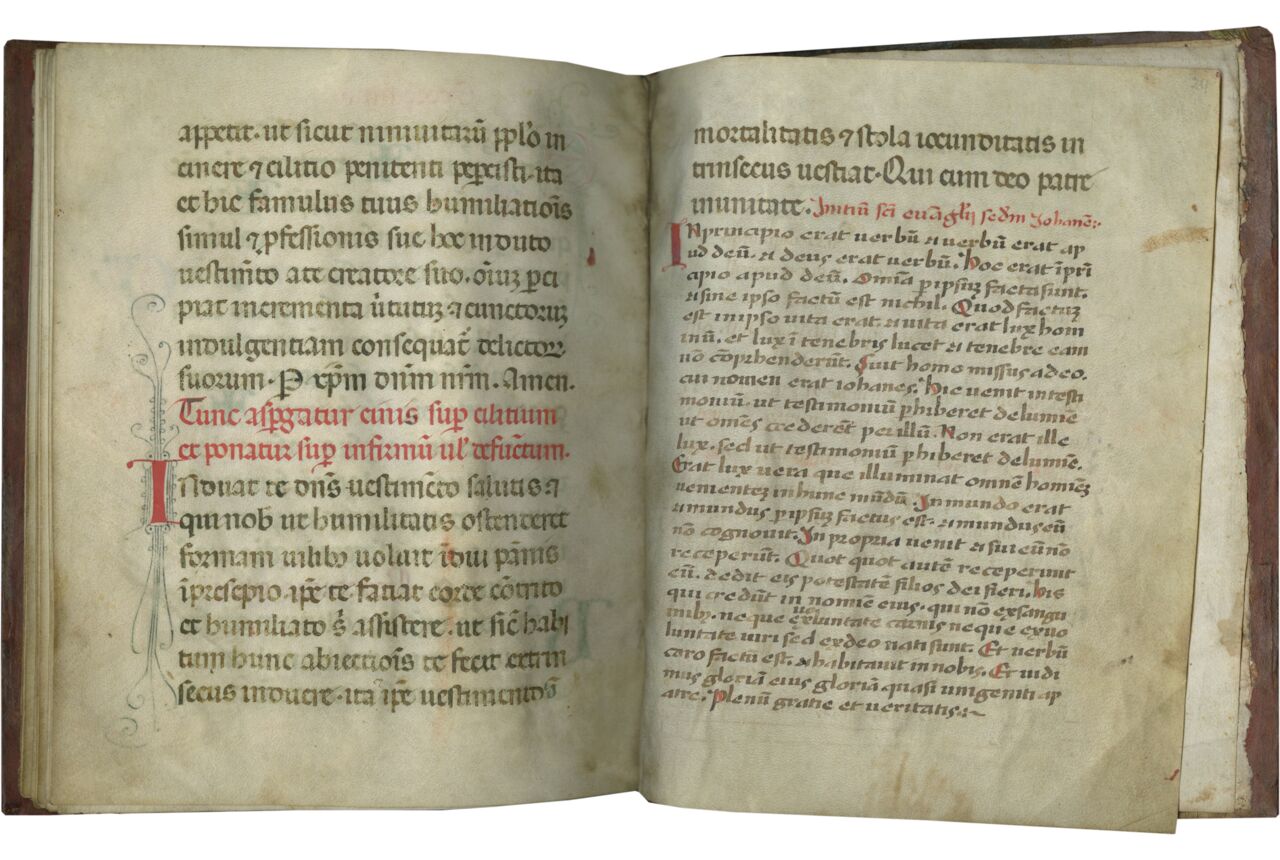 appetit. ut sicut niniuitarū pplo in
cinere ⁊ cilitio penitenti pepcisti. ita
et hic famulus tuus humiliatiōis
simul ⁊ pfessionis sue hoc induto
uestimēto a te creatore suo. oīuꝫ pci
piat incrementa ūtutuꝫ ⁊ cunctoruꝫ
indulgentiam consequat̄ delictoꝝ
suorum. P xp̄m dn̄m nr̄m. Amen.
Tunc aspgatur cinis sup cilitium
et ponatur sup infirmū ul' defūctum.
INduat te dn̄s uestimēto salutis ⁊
qui nob ut humilitatis ostenderet
formam uilibꝫ uoluit īdui pānis
ī presepio. ip̄e te faciat corde cōtrito
et humiliato s̄ assistere. ut sīc habi
tum hunc abiectiōis te fecit extrin
secus induere. ita ip̄e uestimento
mortalitatis ⁊ stola iocunditatis in
trinsecus uestiat. Qui cum deo patre
in unitate. Initiū sc̄i euāglij scd̄m Johanē:
IN principio erat uerbū ⁊ uerbū erat ap
ud deū. ⁊ deus erat uerbū. Hoc erat ī pri
cipio apud deū. Omīa p ipsuꝫ facta sunt.
⁊ sine ipso factū est nichil. Quod factuꝫ
est in ipso uita erat. ⁊ uita erat lux hom
inū. et lux ī tenebris lucet ⁊ tenebre eam
nō cōprhenderūt. Fuit homo missus a deo.
cui nomen erat iohanes. Hic uenit in testi
moniū. ut testimoniū phiberet de lumīe
ut omēs crederēt per illū. Non erat ille
lux. sed ut testimoniū phiberet de lumīe.
Erat lux uera que illuminat omnē homīeꝫ
uementeꝫ in hunc mūdū. In mundo erat
⁊ mundus p ipsuꝫ factus est. ⁊ mundus eū
nō cognouit. In propria uenit ⁊ sui eū nō
receperūt. Quot quot autē receperunt
eū. dedit eis potestatē filios dei fieri. his
qui credūt in nomīe eius. qui nō ex sangu
inibꝫ. neque ex uoluntate carnis neque ex uo
luntate uiri sed ex deo nati sunt. Et uerbū
caro factū est. ⁊ habitauit in nobis. Et uidi
mus gloriā eius gloriā quasi unigeniti ap
atre. Plenū gratie et ueritatis